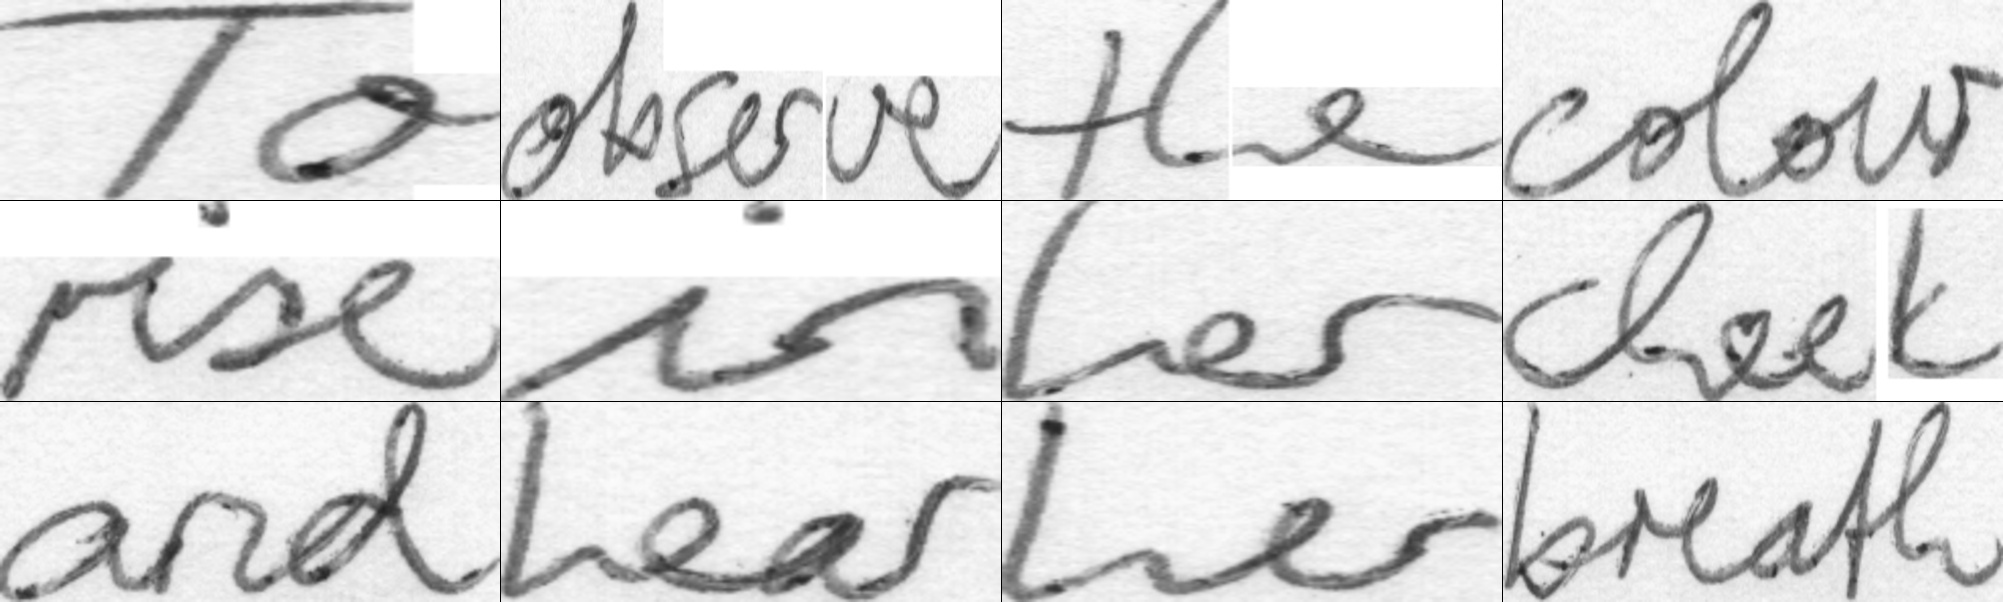 To observe the colour
rise in her cheek
and hear her breath